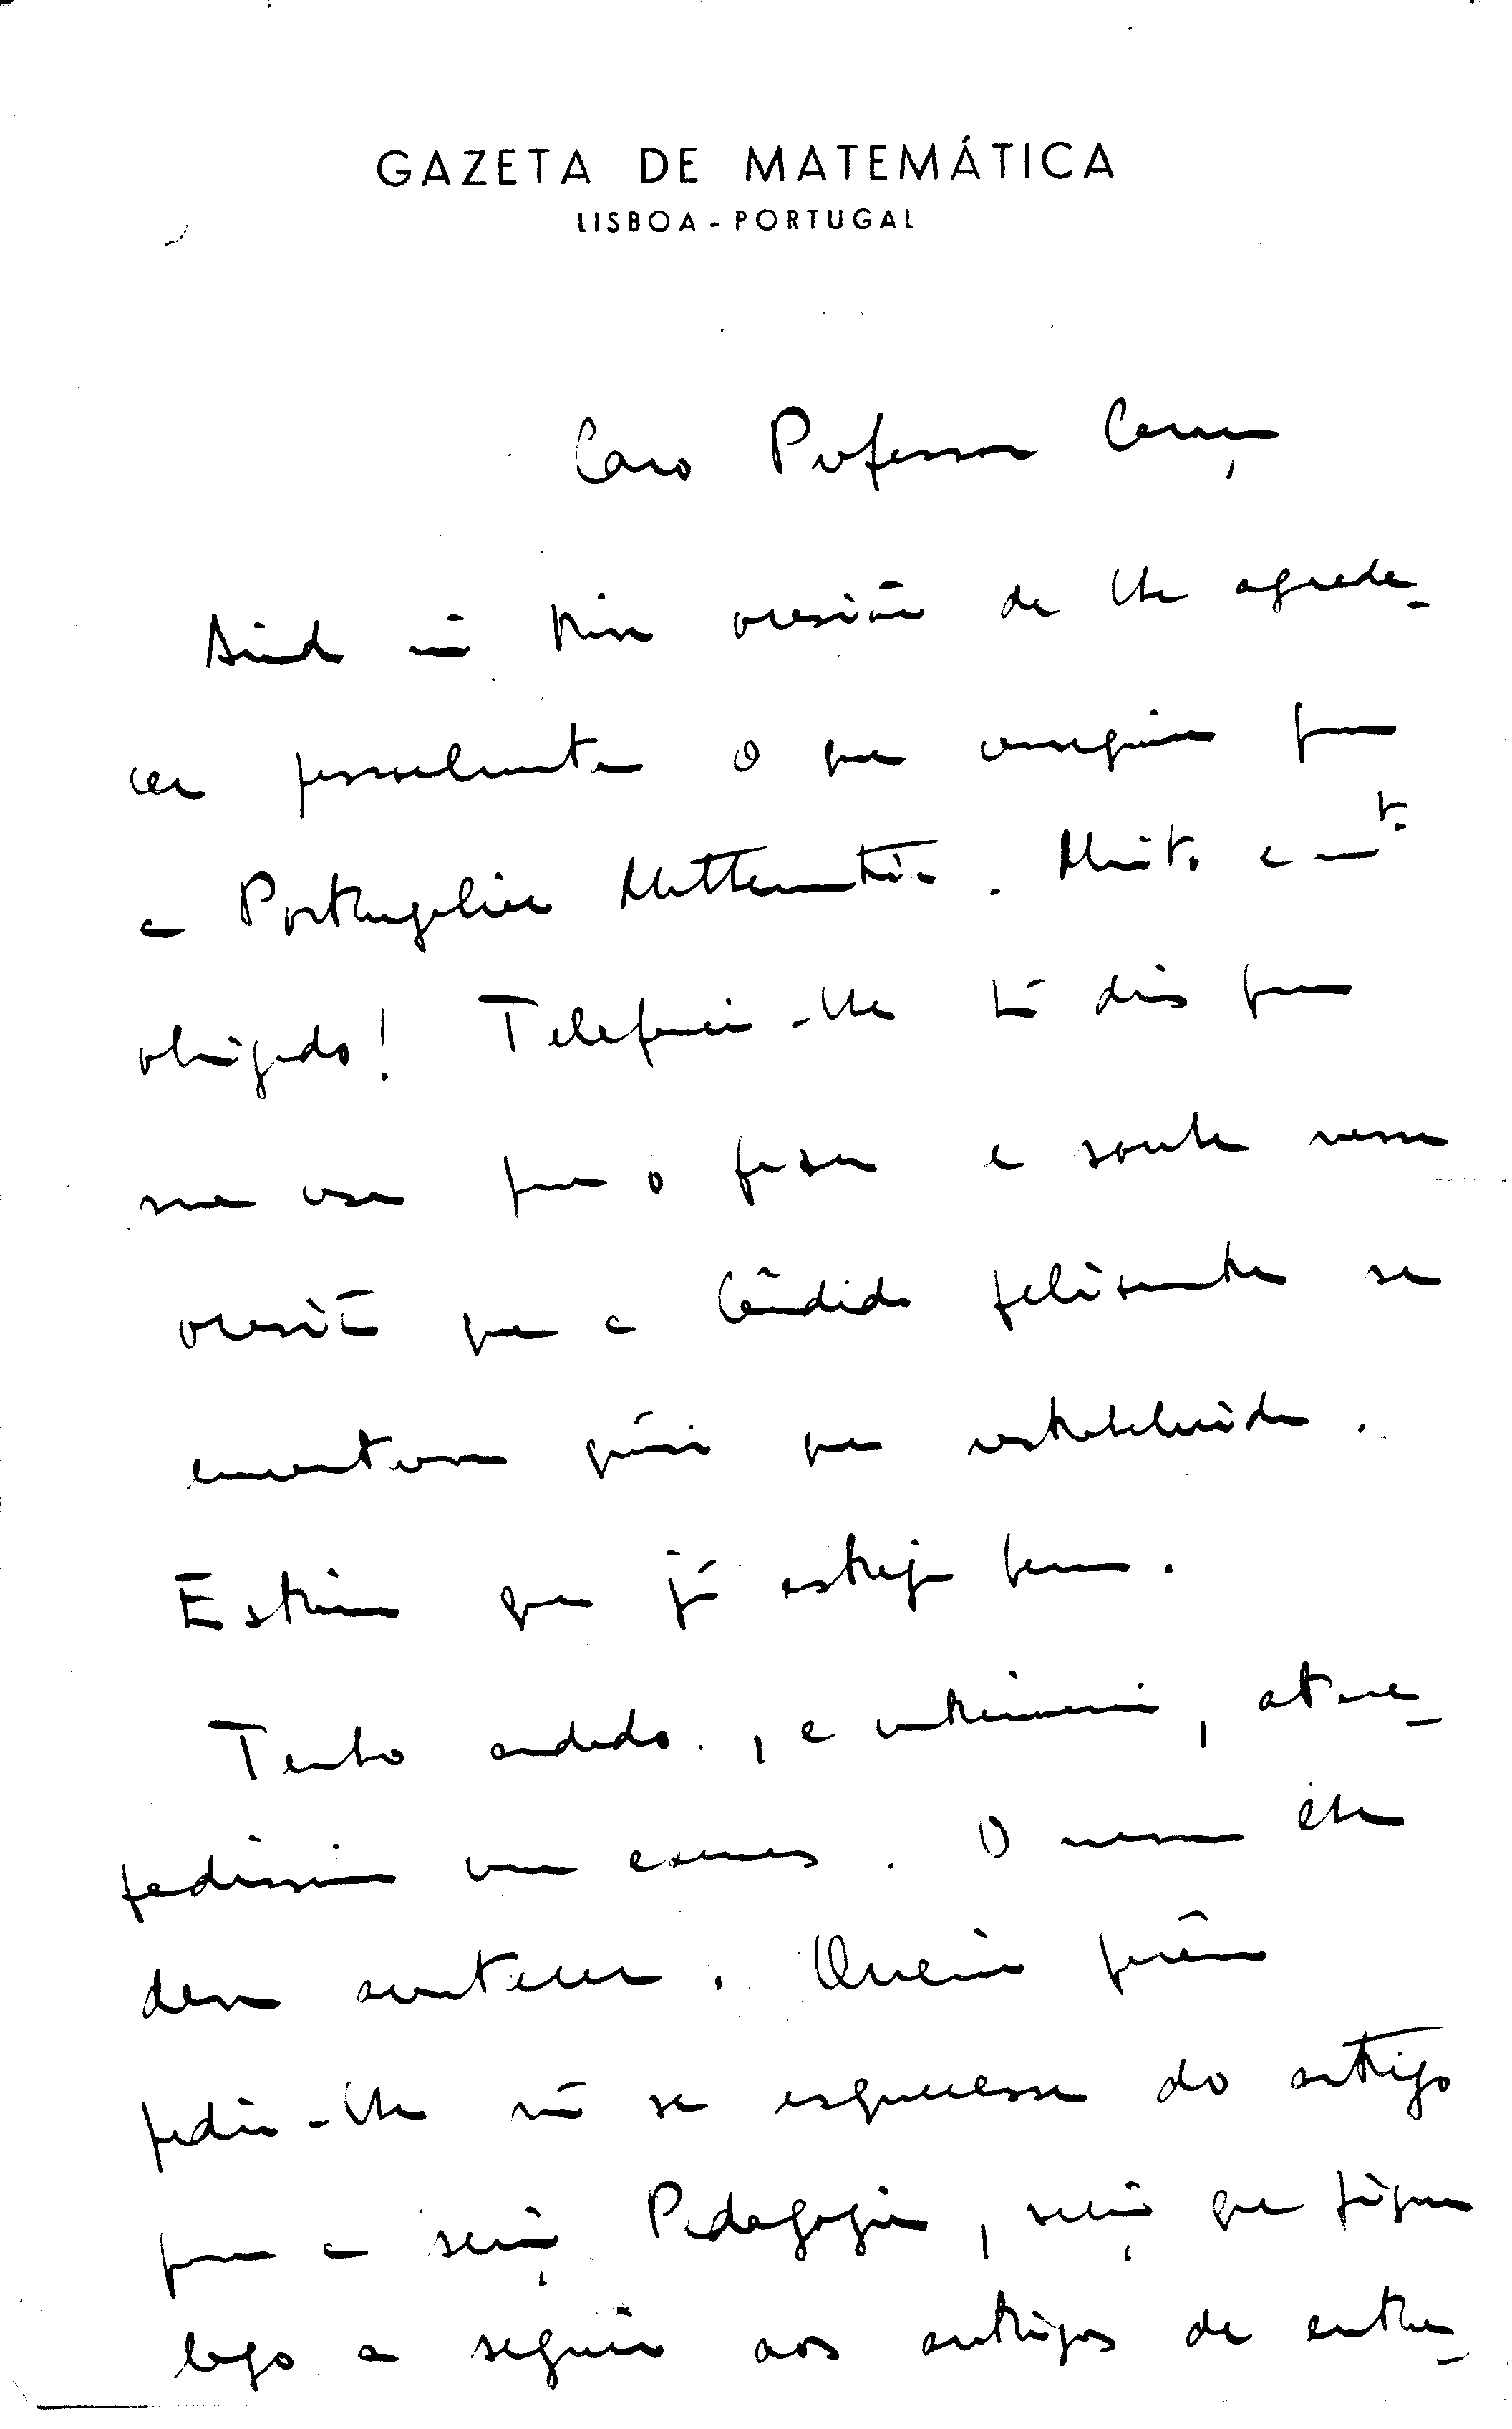 GAZETA DE MATEMÁTICA
LISBOA - PORTUGAL
Caro Professor Caraça
Ainda não tive ocasião de lhe agrade-
cer pessoalmente o que conseguiu para
a Portugaliae Mathematica. Muito e mt.
obrigado! Telefonei-lhe há dias para
sua casa para o fazer e soube nessa
ocasião que a Cândida felizmente se
encontrava quási que restabelecida.
Estimo que já esteja bem.
Tenho andado, e continuarei, atare-
fadíssimo com exames. O mesmo lhe
deve acontecer. Queria porém
pedir-lhe não se esquecesse do artigo
para a secção Pedagogia, secção que figura
logo a seguir aos artigos de entra-